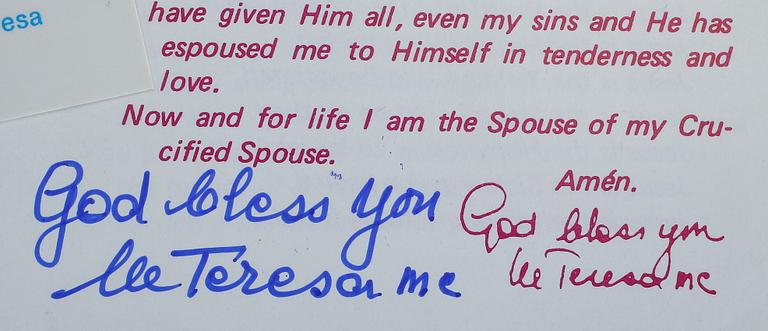 esa
have given Him all, even my sins and He has
espoused me to Himself in tenderness and
love.
Now and for life I am the Spouse of my Cru-
cified Spouse.
Amén.
God bless you
lle Teresa mc
God bless you
lle Teresa mc